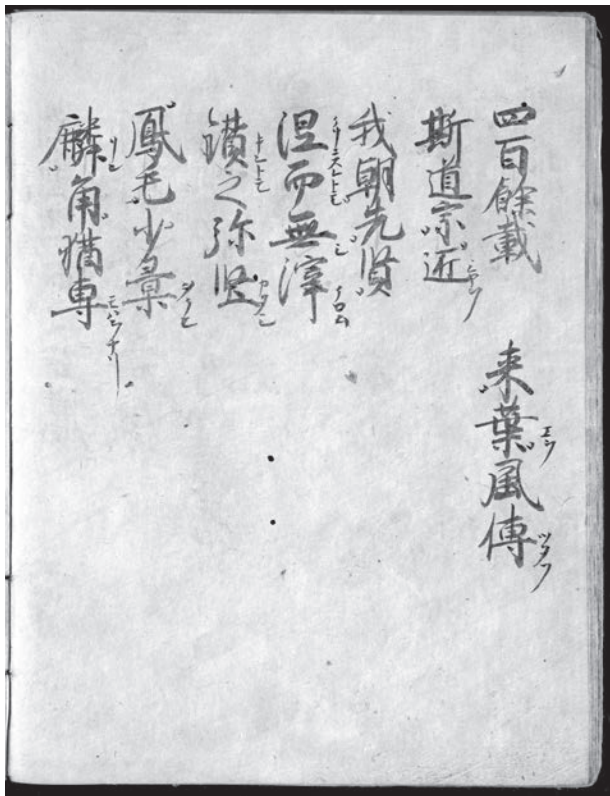 四百餘載　来葉風傳
斯道宗匠
我朝先賢
涅而無滓
鑚之弥堅
鳳毛少彙
麟角猶專